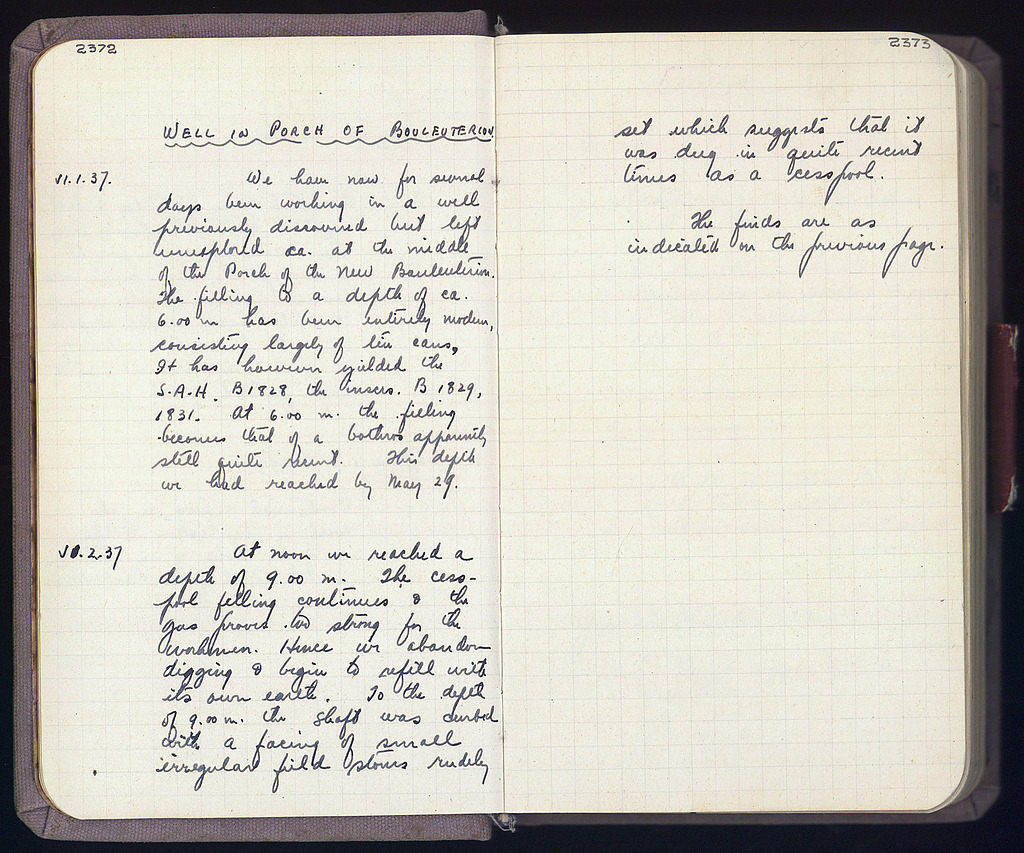 2372
WELL IN PORCH OF BOULEUTERION
VI.1.37. We have now for several
days been working in a well
previously discovered but left
unexplored ca. at the middle
of the Porch of the New Bouleuterion.
The filling to a depth of ca.
6.00 m has been entirely modern,
consisting largely of tin cans,
It has however yielded the
S.A.H. B1828, the inscrs. B 1829,
1831. At 6.00 m. the filling
becomes that of a bothros apparently
still quite recent. This depth
we had reached by May 29.
VI.2.37 At noon we reached a
depth of 9.00 m. The cess-
pool filling continues & the
gas proves too strong for the
workmen. Hence we abandon
digging & begin to refill with
its own earth. To the depth
of 9.00 m. the shaft was curbed
with a facing of small
irregular field stones rudely
2373
set which suggests that it
was dug in quite recent
times as a cesspool.
The finds are as
indicated on the previous page.